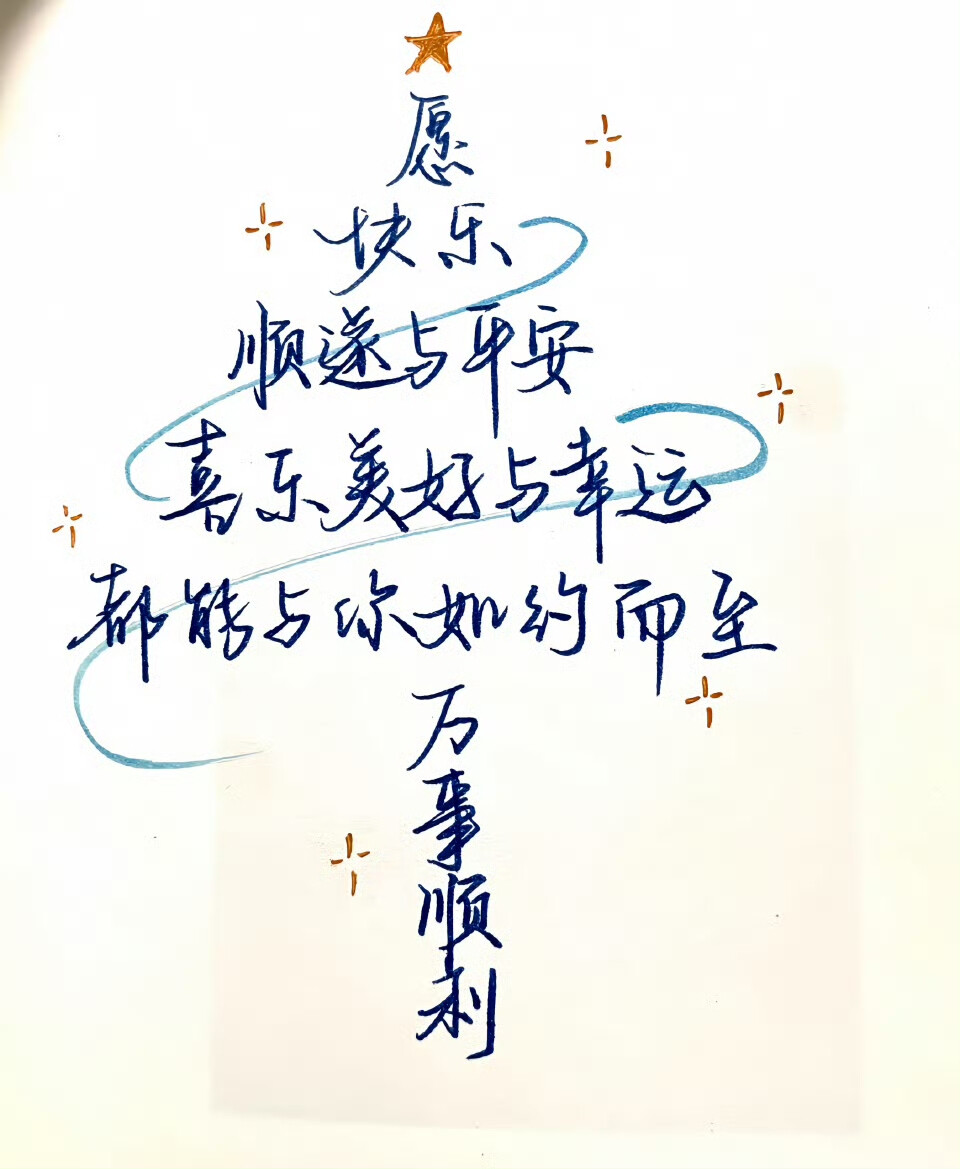 愿
快乐
顺遂与平安
喜乐美好与幸运
都能与你如约而至
万
事
顺
利